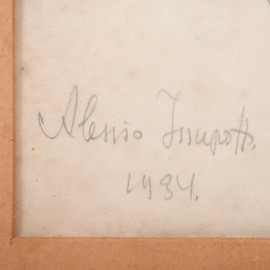 Alessio Issupoff.
1934.